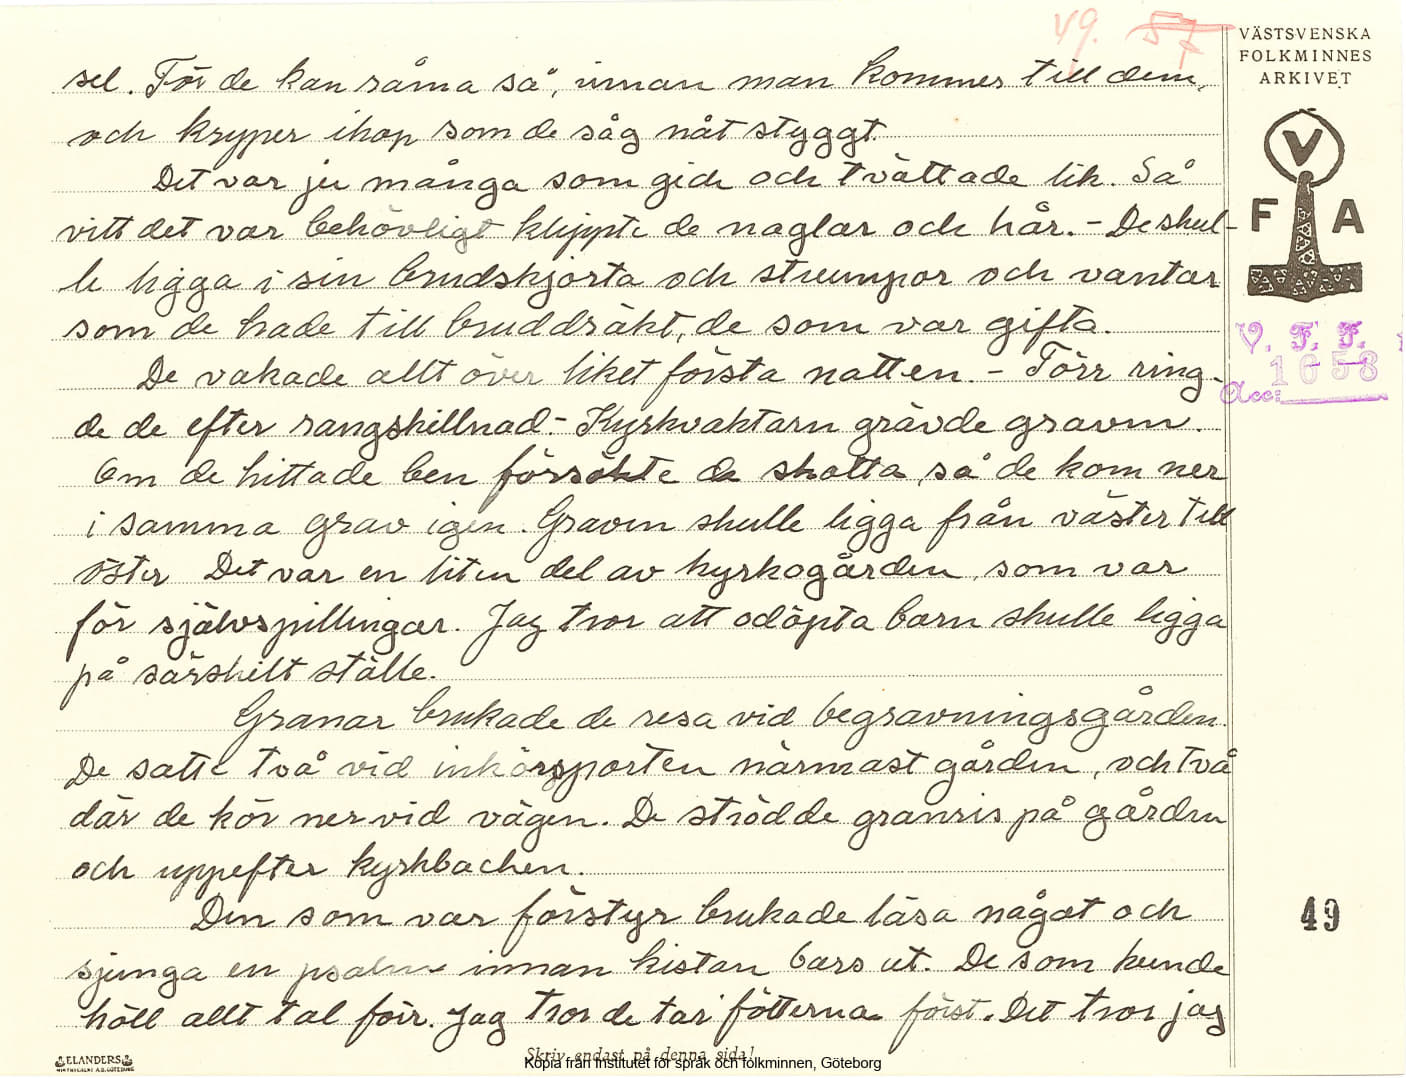 49. 57
VÄSTSVENSKA
FOLKMINNES
ARKIVET
V
F A
V. F. F.
1658
Acc:
sel. För de kan råma så, innan man kommer till dem,
och kryper ihop som de såg nåt styggt.
Det var ju många som gick och tvättade lik. Så
vitt det var behövligt klippte de naglar och hår. - De skul-
le ligga i sin brudskjorta och strumpor och vantar
som de hade till bruddräkt, de som var gifta.
De vakade allt över liket första natten. - Förr ring-
de de efter rangskillnad. - Kyrkvaktarn grävde graven.
Om de hittade ben försökte de skotta, så de kom ner
i samma grav igen. Graven skulle ligga från väster till
öster Det var en liten del av kyrkogården, som var
för självspillingar. Jag tror att odöpta barn skulle ligga
på särskilt ställe.
Granar brukade de resa vid begravningsgården.
De satte två vid inkörsporten närmast gården, och två
där de kör ner vid vägen. De strödde granris på gården
och uppefter kyrkbacken.
Den som var förstyr brukade läsa något och
sjunga en psalm innan kistan bars ut. De som kunde
höll allt tal förr. Jag tror de tar fötterna först. Det tror jag
49
ELANDERS
Skriv endast på denna sida!
Kopia från Institutet för språk och folkminnen, Göteborg